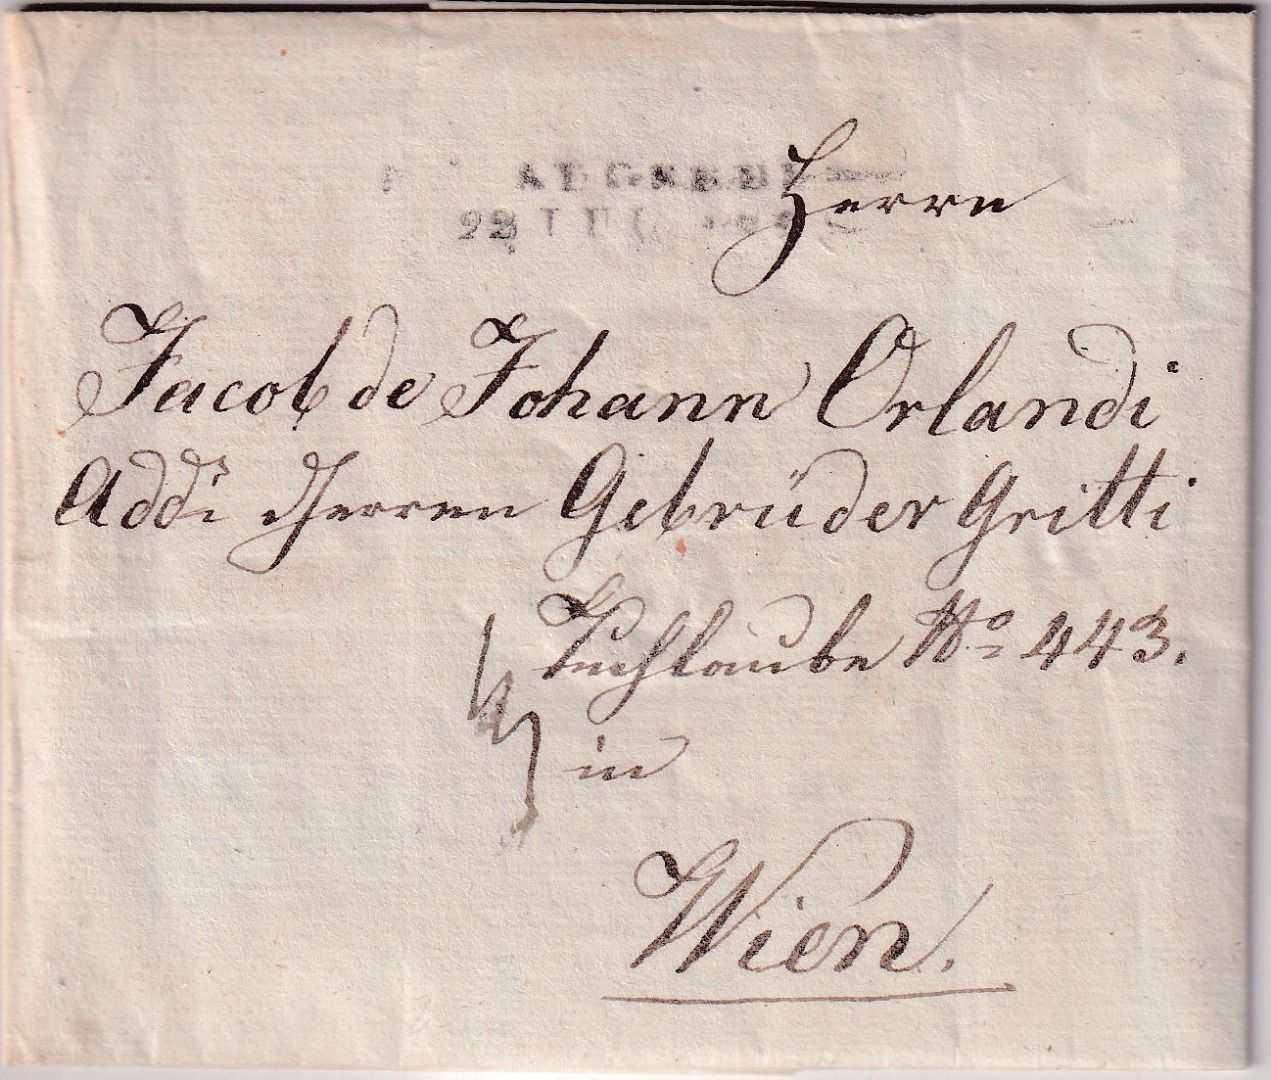 Herrn
Jacob de Johann Orlandi
Addi Herren Gebrüder Gritti
Tuchlaube No 443.
in
Wien.